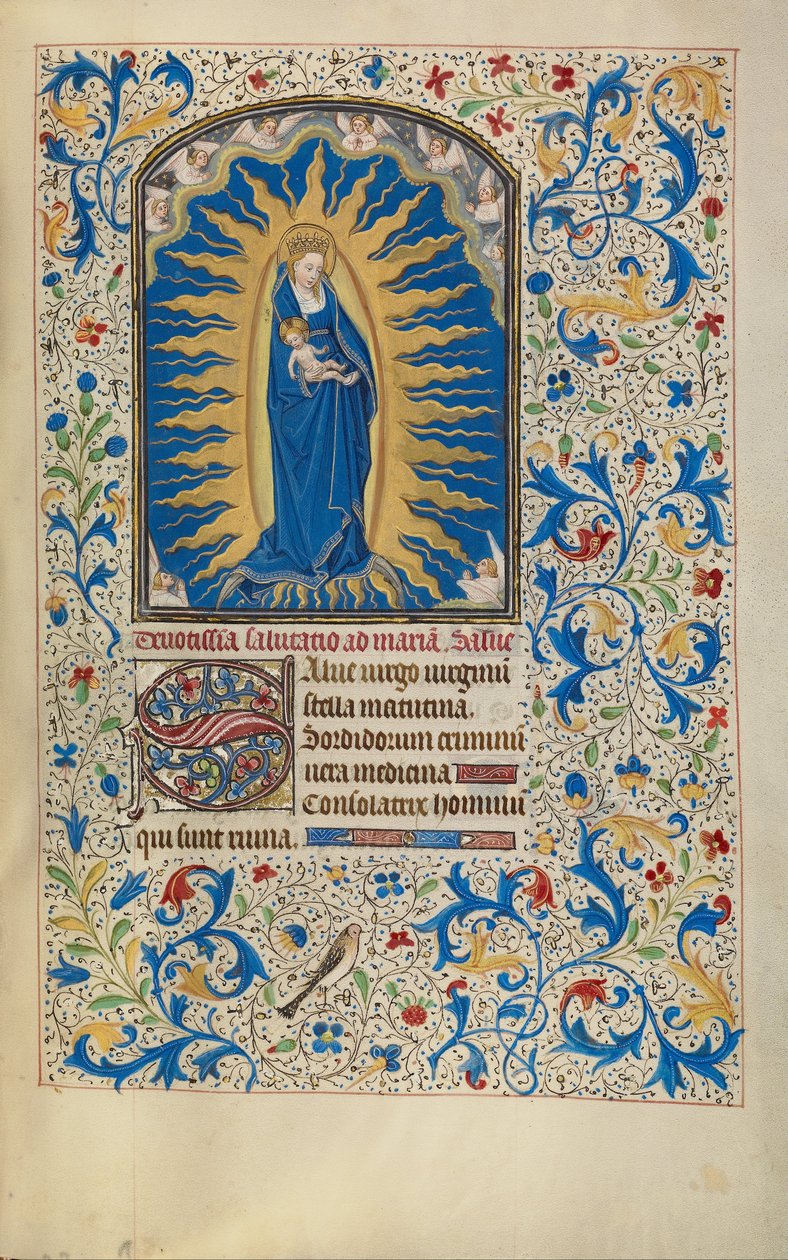 Deuotissīa salutatio ad mariā. Salue
Salue uirgo uirginū
stella matutina.
Sordidorum crīminū
uera medicina
Consolatrix hominū
qui sunt ruina.